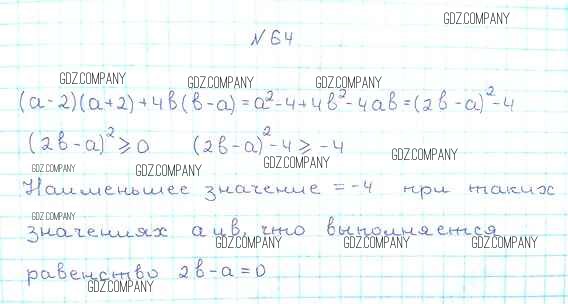 GDZ.COMPANY
N 64
GDZ.COMPANY GDZ.COMPANY GDZ.COMPANY
(a-2)(a+2)+4в(в-a)=a²-4+4в²-4aв=(2в-a)²-4
(2в-a)²⩾0 (2в-a)²-4⩾-4
GDZ.COMPANY GDZ.COMPANY GDZ.COMPANY GDZ.COMPANY
Наименьшее значение =-4 при таких
GDZ.COMPANY
значениях a и в, что выполняется
GDZ.COMPANY GDZ.COMPANY GDZ.COMPANY
равенство 2в-a=0
GDZ.COMPANY